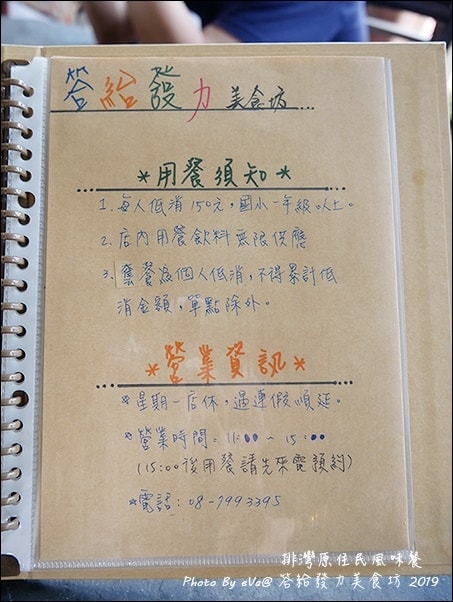 答給發力 美食坊...
*用餐須知*
1. 每人低消150元,國小一年級以上。
2. 店內用餐飲料無限供應
3. 套餐為個人低消,不得累計低
消金額,單點除外。
*營業資訊*
*星期一店休,遇連假順延。
*營業時間:11:00~15:00
(15:00後用餐請先來電預約)
*電話:08-7993395
排灣原住民風味餐
Photo By eVa@ 答給發力美食坊 2019